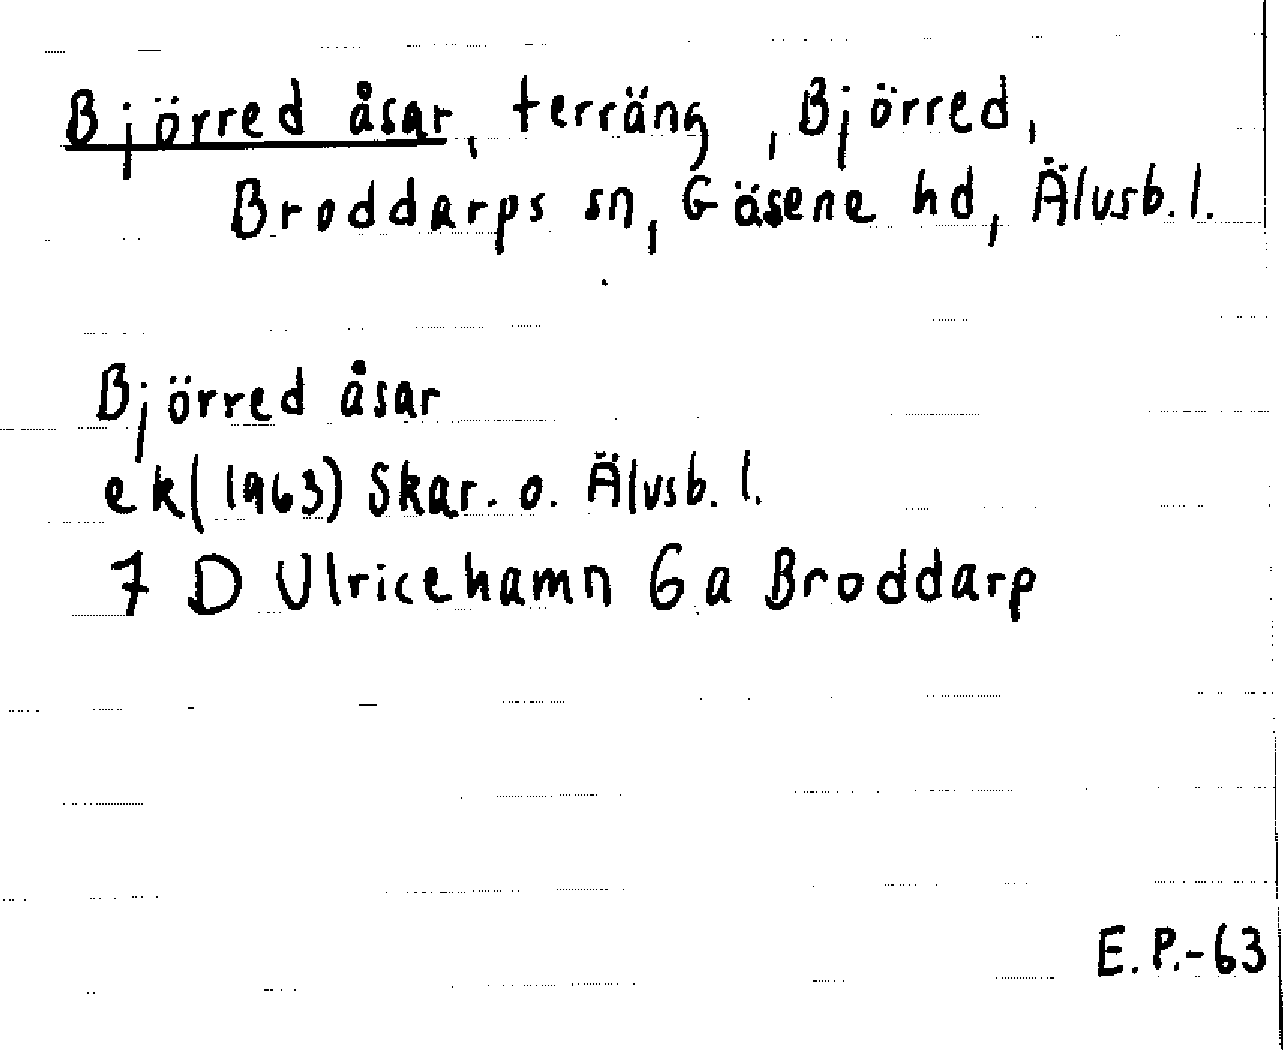 Björred åsar, terräng, Björred,
Broddarps sn, Gäsene hd, Älvsb. l.
Björred åsar
ek (1963) Skar. o. Älvsb. l.
7 D Ulricehamn 6 a Broddarp
E. P. - 63